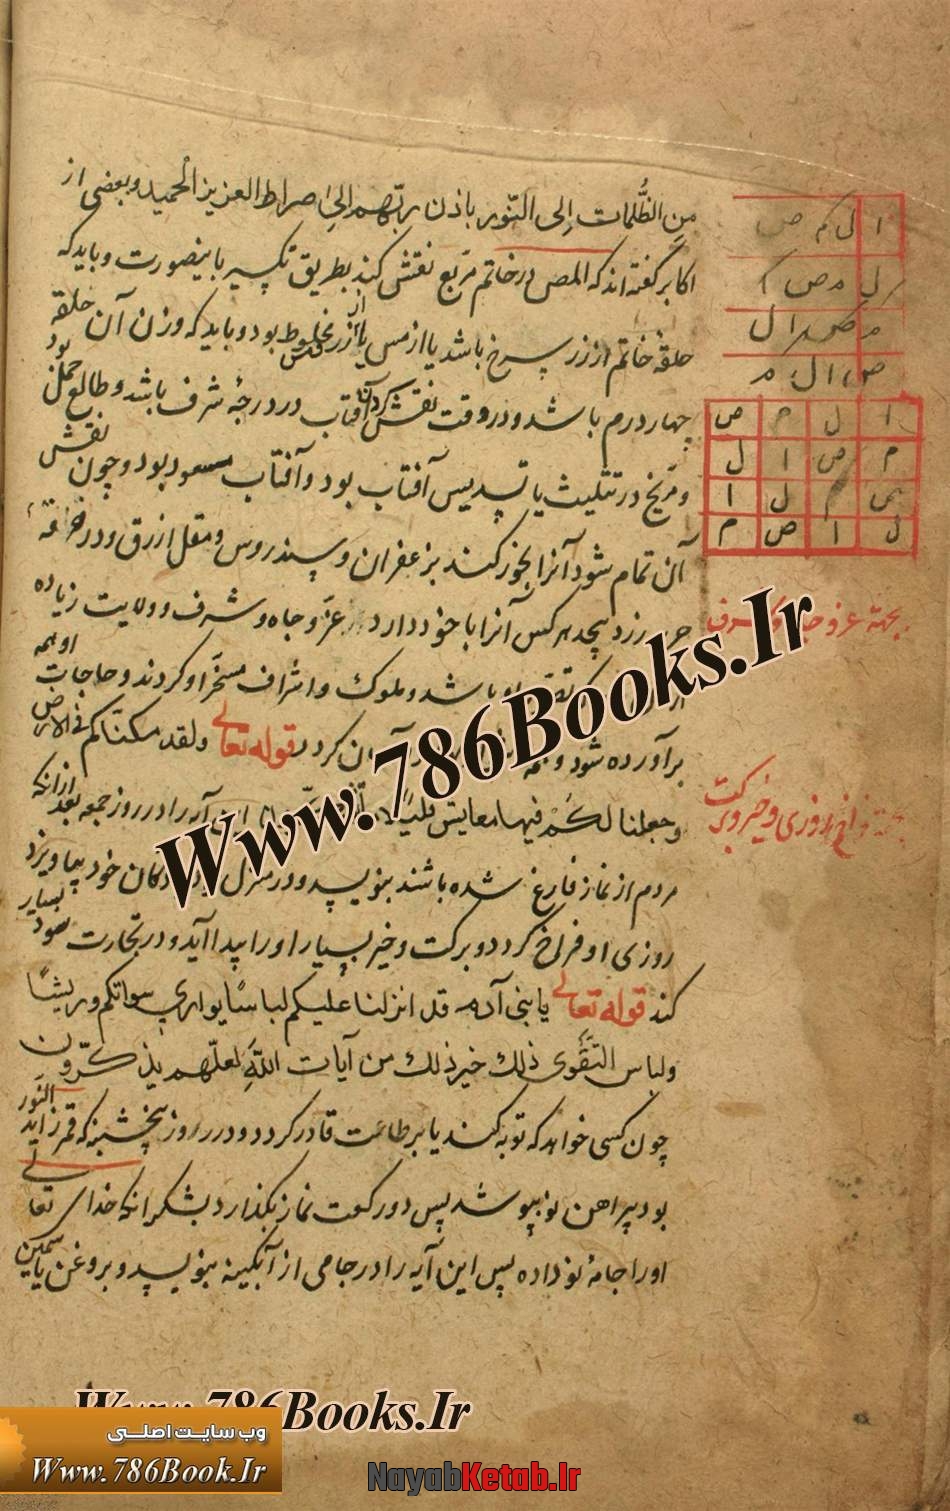 من الظُّلمات إلی النّور باذن ربّهم الیٰ صراط العزیز الحمید و بعضی از
اکابر گفته اند که المص در خاتم مربّع نقش کند بطریق تکسیر باینصورت و باید که
حلقهٔ خاتم از زر سرخ باشد یا از مس یا از زر مخلوط بود و باید که وزن آن حلقه
چهار درم باشد و در وقت نقش کردن آفتاب در درجهٔ شرف باشد و طالع حمل بود
و مریخ در تثلیث یا تسدیس آفتاب بود و آفتاب مسعود بود و چون نقش
آن تمام شود آنرا بخور کند بزعفران و سندروس و مقل ازرق و در
زرد پیچد هر کس آنرا با خود دارد در عز و جاه و شرف و ولایت زیاده
باشد و ملوک و اشراف مسخّر او گردند و حاجات او همه
برآورده شود و گردد قوله تعالی ولقد مکنّاکم فی الارض
وجعلنا لکُم فیها معایش قلیلًا این آیه را در روز جمعه بعد از آنکه
مردم از نماز فارغ شده باشند بنویسد و در منزل دکان خود بیاویزد
روزی او فراخ گردد و برکت و خیر بسیار او را پیدا آید و در تجارت سود بسیار
کند قوله تعالی یا بنی آدم قد انزلنا علیکم لباسًا یواری سوآتکم وریشًا
ولباس التقوی ذلك خیر ذلك من آیات اللّه لعلّهم یذکّرون
چون کسی خواهد که توبه کند یا بر طاعت قادر گردد و در روز پنجشنبه که قمر زاید النور
بود پیراهن نو بپوشد پس دو رکعت نماز بگذارد بشکرانه خدای تعالی
او را جامهٔ نو داده پس این آیه را در جامی از آبگینه بنویسد و بروغن یاسمین
ا ل م ص
ل م ص ا
م ص ا ل
ص ا ل م
ا ل م ص
م ص ا ل
ص م ل ا
ل ا ص م
بجهة عز و جاه و شرف
فراخ روزی و خیر و برکت
Www.786Books.Ir
Www.786Books.Ir
وب سایت اصلی
Www.786Book.Ir
NayabKetab.Ir